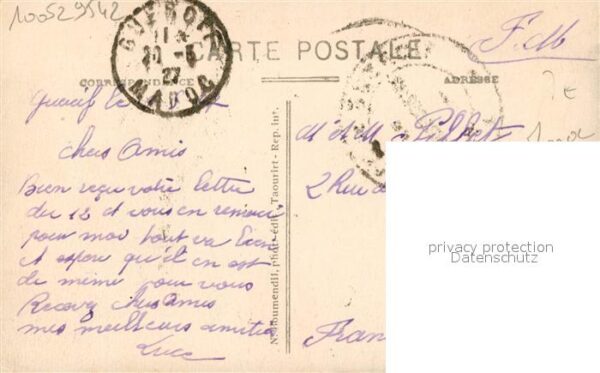 100529542
GUERCIF
11
20-8
27
MAROC
CARTE POSTALE
CORRESPONDANCE
ADRESSE
F.M
Guercif le
chers Amis
Bien reçu votre lettre
du 12 et vous en remercie
pour moi tout va bien
et espère qu'il en est
de même pour vous
Recevez chers Amis
mes meilleurs amitiés
Luce
N. Boumendil, phot-édit., Taourirt - Rep. int.
M et M
2 Rue
Fran
privacy protection
Datenschutz